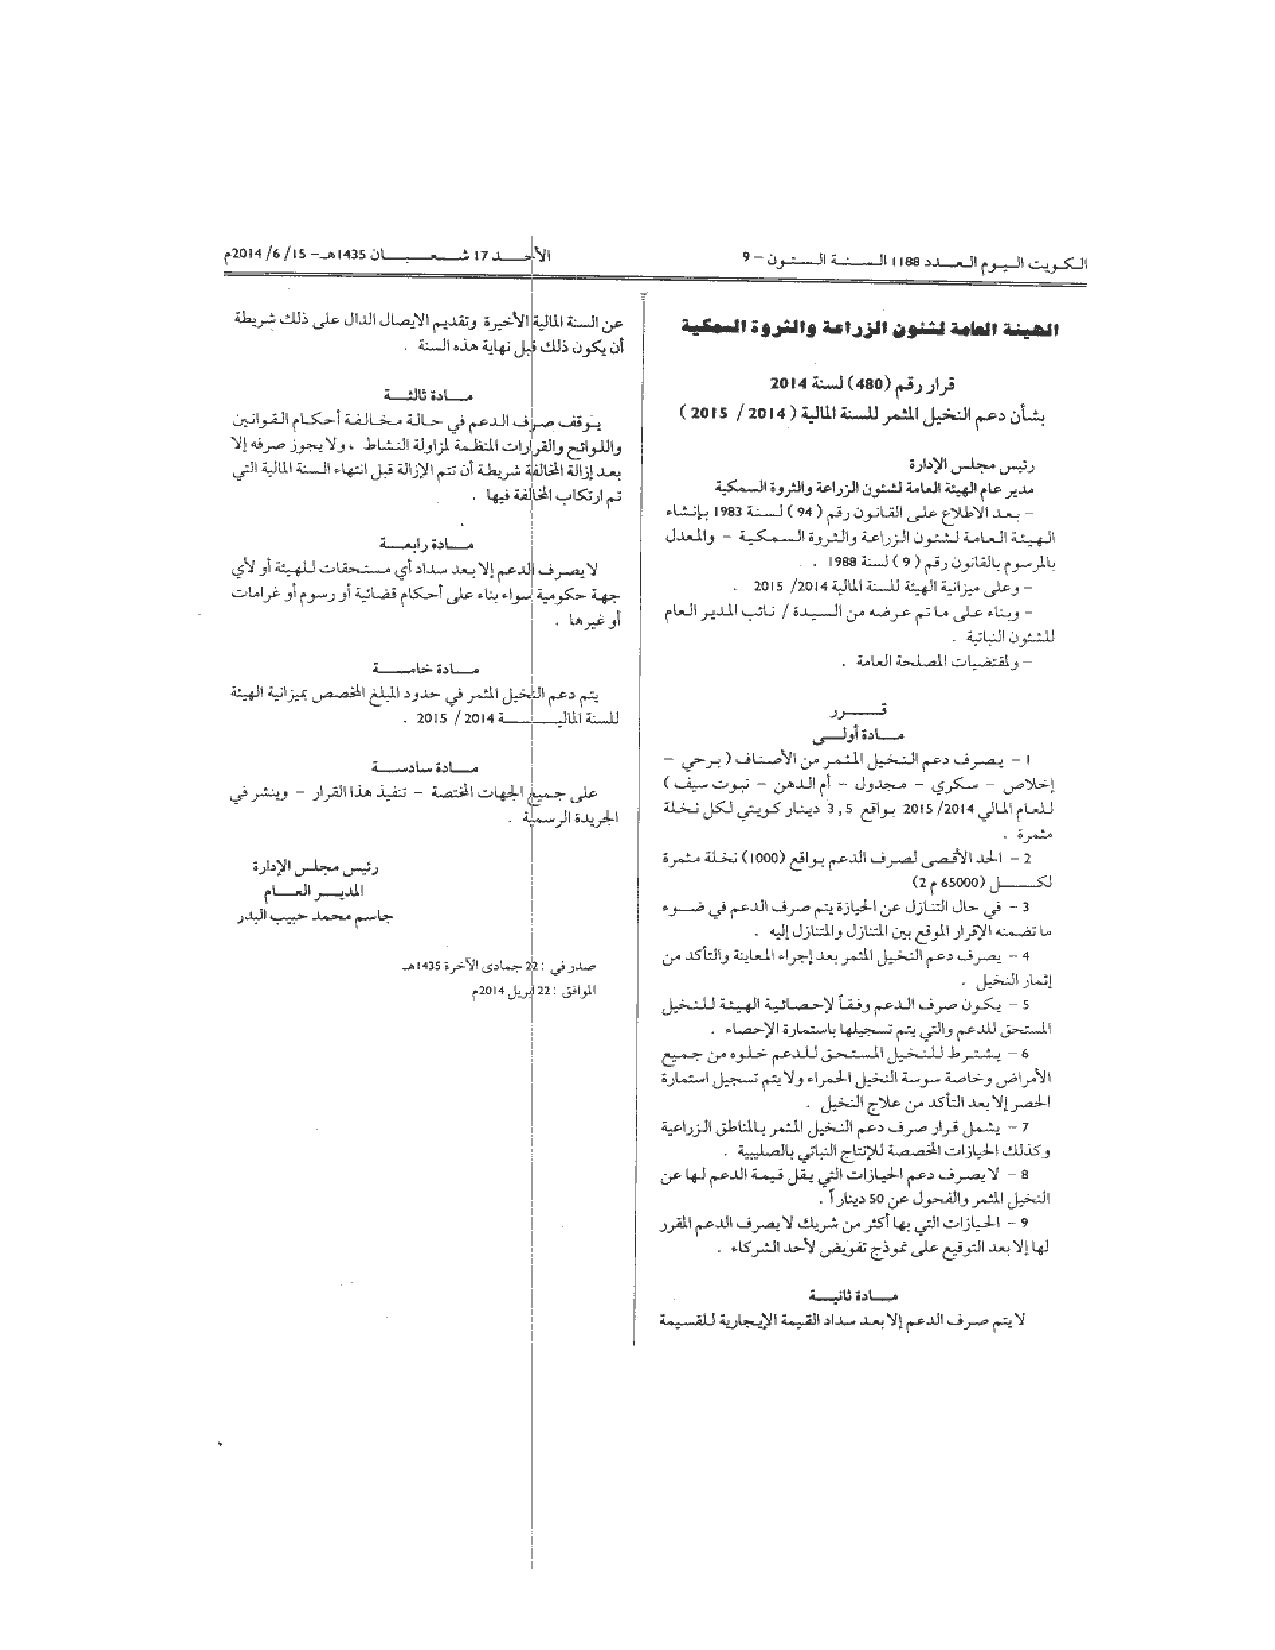 الكويت اليوم العدد 1188 السنة الستون – 9
الأحد 17 شعبان 1435هـ – 15 /6 /2014م
الهيئة العامة لشئون الزراعة والثروة السمكية
قرار رقم (480) لسنة 2014
بشأن دعم النخيل المثمر للسنة المالية (2014 / 2015 )
رئيس مجلس الإدارة
مدير عام الهيئة العامة لشئون الزراعة والثروة السمكية
– بعد الاطلاع على القانون رقم (94 ) لسنة 1983 بإنشاء
الهيئة العامة لشئون الزراعة والثروة السمكية – والمعدل
بالمرسوم بالقانون رقم (9 ) لسنة 1988 .
– وعلى ميزانية الهيئة للسنة المالية 2014/ 2015 .
– وبناء على ما تم عرضه من السيدة / نائب المدير العام
للشئون النباتية .
– ولمقتضيات المصلحة العامة .
قـــرر
مـادة أولـى
1 – يصرف دعم النخيل المثمر من الأصناف ( برحي –
إخلاص – سكري – مجدول – أم الدهن – نبوت سيف )
للعام المالي 2014/ 2015 بواقع 3,5 دينار كويتي لكل نخلة
مثمرة .
2 – الحد الأقصى لصرف الدعم بواقع (1000) نخلة مثمرة
لكـــل (65000 م 2)
3 – في حال التنازل عن الحيازة يتم صرف الدعم في ضوء
ما تضمنه الإقرار الموقع بين المتنازل والمتنازل إليه .
4 – يصرف دعم النخيل المثمر بعد إجراء المعاينة والتأكد من
إثمار النخيل .
5 – يكون صرف الدعم وفقاً لإحصائية الهيئة للنخيل
المستحق للدعم والتي يتم تسجيلها باستمارة الإحصاء .
6 – يشترط للنخيل المستحق للدعم خلوه من جميع
الأمراض وخاصة سوسة النخيل الحمراء ولا يتم تسجيل استمارة
الحصر إلا بعد التأكد من علاج النخيل .
7 – يشمل قرار صرف دعم النخيل المثمر بالمناطق الزراعية
وكذلك الحيازات المخصصة للإنتاج النباتي بالصليبية .
8 – لا يصرف دعم الحيازات التي يقل قيمة الدعم لها عن
النخيل المثمر والفحول عن 50 ديناراً .
9 – الحيازات التي بها أكثر من شريك لا يصرف الدعم المقرر
لها إلا بعد التوقيع على نموذج تفويض لأحد الشركاء .
مـــادة ثانيـة
لا يتم صرف الدعم إلا بعد سداد القيمة الإيجارية للقسيمة
عن السنة المالية الأخيرة وتقديم الإيصال الدال على ذلك شريطة
أن يكون ذلك قبل نهاية هذه السنة .
مـــادة ثالثـة
يوقف صرف الدعم في حالة مخالفة أحكام القوانين
واللوائح والقرارات المنظمة لمزاولة النشاط ، ولا يجوز صرفه إلا
بعد إزالة المخالفة شريطة أن تتم الإزالة قبل انتهاء السنة المالية التي
تم ارتكاب المخالفة فيها .
مـــادة رابعـة
لا يصرف الدعم إلا بعد سداد أي مستحقات للهيئة أو لأي
جهة حكومية سواء بناء على أحكام قضائية أو رسوم أو غرامات
أو غيرها .
مـــادة خامسـة
يتم دعم النخيل المثمر في حدود المبلغ المخصص بميزانية الهيئة
للسنة الماليـــة 2014 / 2015 .
مـــادة سادسـة
على جميع الجهات المختصة – تنفيذ هذا القرار – وينشر في
الجريدة الرسمية .
رئيس مجلس الإدارة
المديـر العـام
جاسم محمد حبيب البدر
صدر في : 22 جمادى الآخرة 1435هـ
الموافق : 22 ابريل 2014م